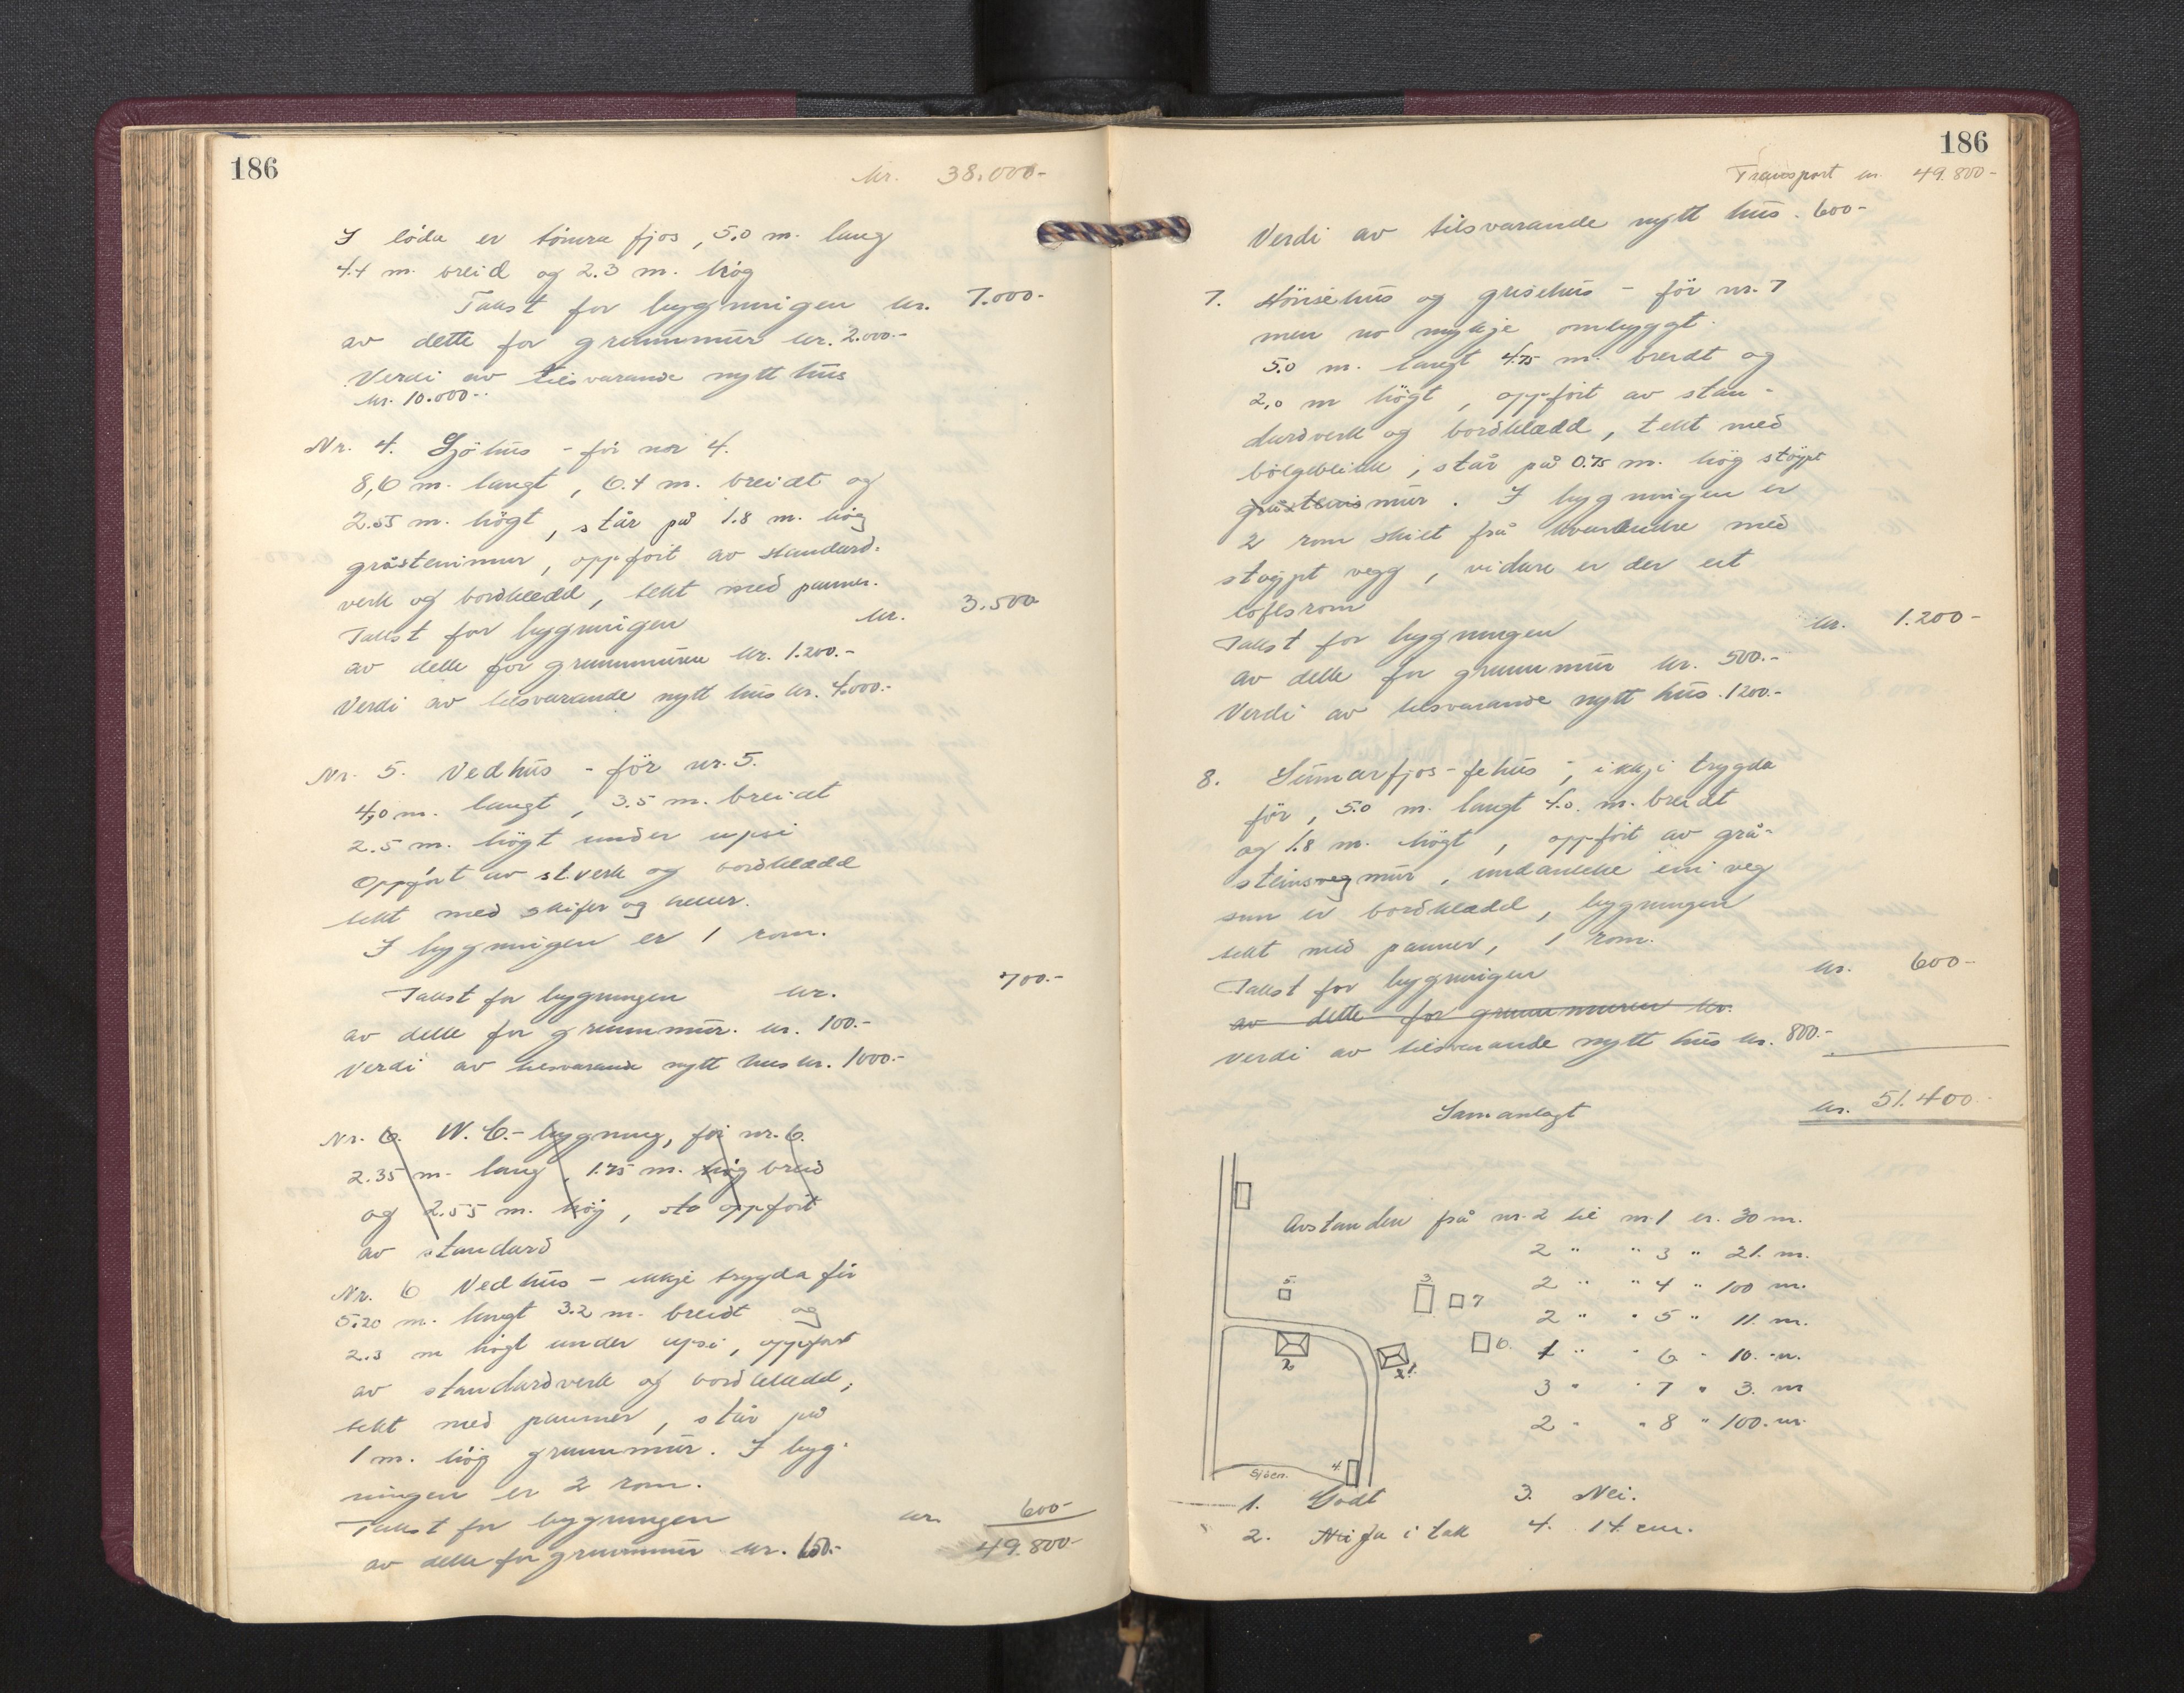 186
kr. 38.000-
I löda er tömra fjos, 5.0 m. lang
4.4 m. breid og 2.3 m. hög
Takst for bygningen kr. 7.000-
av dette for grunnmur kr. 2.000.-
Verdi av tilsvarande nytt hus
kr. 10.000.-
Nr. 4. Sjöhus - för nr 4.
8,6 m. langt, 6.4 m. breidt og
2.55 m. högt, står på 1.8 m. hög
gråsteinmur, oppfört av standard-
verk og bordkledd, tekt med panner.
Takst for bygningen kr. 3.500
av dette for grunnmuren kr. 1.200.-
Verdi av tilsvarande nytt hus kr. 4.000.-
Nr. 5. Vedhus - för nr. 5.
4,0 m. langt, 3.5 m. breidt
2.5 m. högt under upsi
Oppfört av st.verk og bordkledd
tekt med skifer og heller.
I bygningen er 1 rom.
Takst for bygningen kr. 700.-
av dette for grunnmur. kr. 100.-
Verdi av tilsvarande nytt hus kr. 1000.-
Nr. 6. W.C.- bygning, för nr. 6.
2.35 m. lang, 1.75 m. hög breid
og 2.55 m. hög, sto oppfört
av standard
Nr. 6 Vedhus - ikkje trygda för
5.20 m. langt 3.2 m. breidt og
2.3 m högt under upsi, oppfört
av standardverk og bordkledd,
tekt med panner, står på
1 m. hög grunnmur. I byg-
ningen er 2 rom.
Takst for bygningen kr. 600-
av dette for grunnmur kr. 150.- 49.800-
186
Transport kr. 49.800-
Verdi av tilsvarande nytt hus. 600-
7. Hönsehus og grisehus - för nr. 7
men no mykje ombyggt.
5.0 m. langt 4.75 m. breidt og
2,0 m högt, oppfört av stan-
dardverk og bordkledd, tekt med
bölgeblikk, står på 0.75 m. hög stöypt
gråsteinsmur. I bygningen er
2 rom skilt frå kvarandre med
stöypt vegg, vidare er der eit
loftsrom
Takst for bygningen kr. 1.200-
av dette for grunnmur kr. 500.-
Verdi av tilsvarande nytt hus. 1200.-
8. Sumarfjos-fehus, ikkje trygda
för, 5.0 m. langt 4.0. m. breidt
og 1.8 m. högt, oppfört av grå-
steinsveg mur, undanteke ein veg
som er bordkledd, bygningen
tekt med panner, 1 rom.
Takst for bygningen kr. 600-
av dette for grunnmuren kr.
Verdi av tilsvarande nytt hus kr. 800.-
Samanlagt kr. 51.400.-
Avstanden frå nr. 2 til nr. 1 er. 30 m.
2 " " 3 " 21. m.
2 " " 4 " 100 m.
2 " " 5 " 11. m.
1 " " 6 " 10. m.
3 " " 7 " 3. m
2 " " 8 " 100. m.
5.
3.
7
6.
2
1.
4.
Sjöen.
1. Godt 3. Nei.
2. Nei Ja i tak 4. 14 cm.